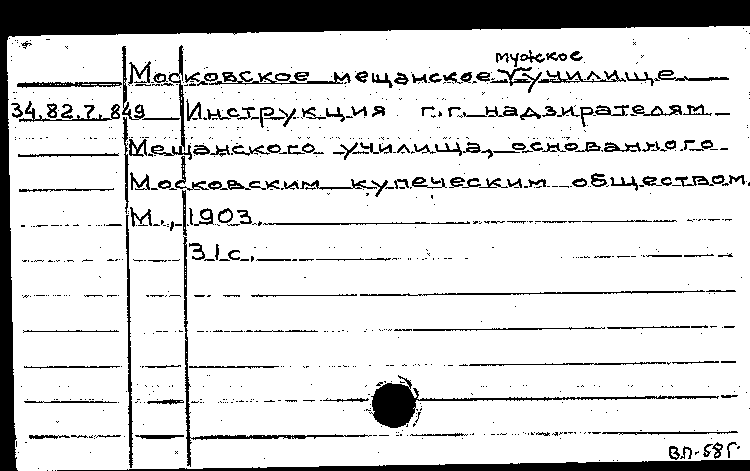 мужское
Московское мещанское училище
34.82.7.849 Инструкция г.г. надзирателям
Мещанского училища, основанного
Московским купеческим обществом.
М., 1903.
31с.
В.П-58г.